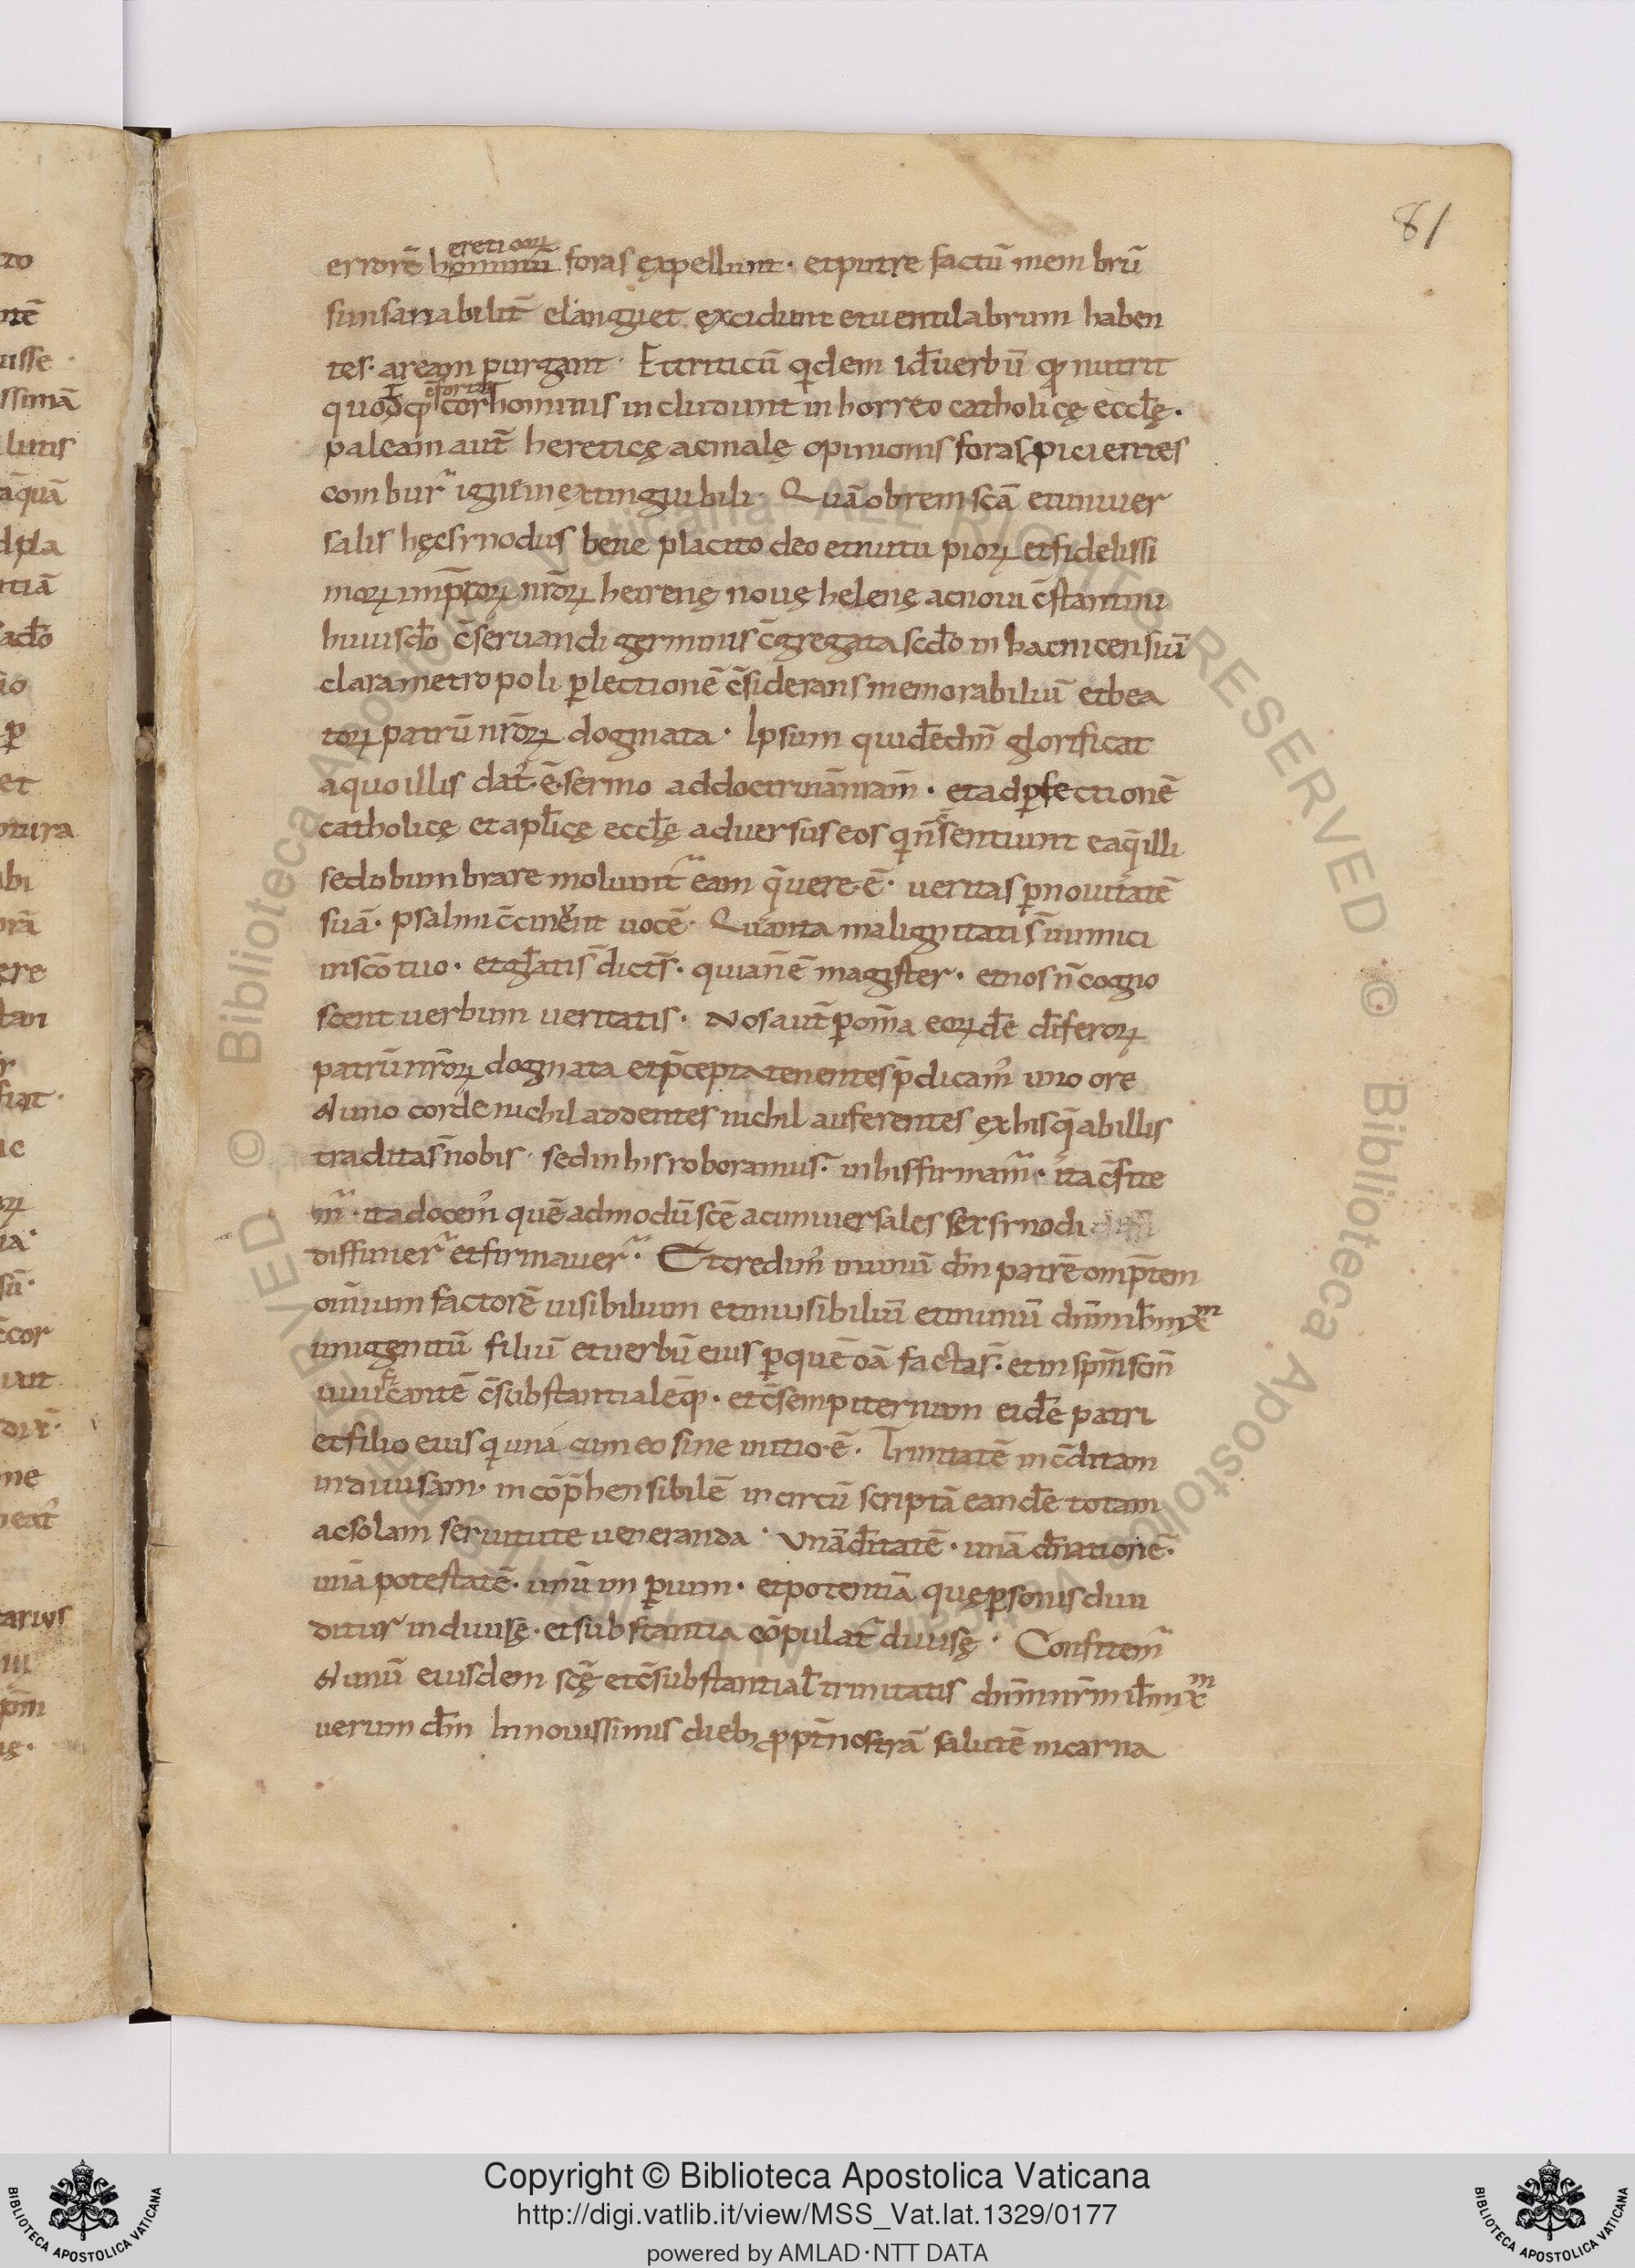 81
errorē hominū eretioꝝ foras ęxpellunt· etputre factū mem brū
siinsanabilit̄ elanguet ęxcidunt etuentilabrum haben
tes· aream purgant· Ettriticū qdem id ēuerbū qđ nutrit
cor hominis includunt in horreo catholicę eccłę·
paleam aut̄ hereticę acmalę opinionis foras picientes
combur̄ igne inęxtinguibili· Quāobrem scā etuniuer
salis hęcsinodus bene placito deo etnutu pioꝝ etfidelissi
moꝝ imp̄toꝝ nr̄oꝝ heirenę nouę helenę acnoui c̄stantini
huiuscđo c̄seruandi germinis c̄gregata scđo in hacnicensiū
clarametropoli p̱lectionē c̄siderans memorabiliū etbea
toꝝ patrū nr̄oꝝ dogmata· Ipsum quidē dm̄ glorificat
aquo illis dat᾽·ē·sermo addoctrinā nram̄· etadp̱fectionē
catholicę etapłicę eccłę aduersus eos qn̄sentiunt eaq̄illi
sedobumbrare moliunt᷑ eam q̄uere·ē· ueritas p̱nouitatē
suā· psalmi c̄cinent uocē· Quanta malignitatis ē inimici
insc̄o tuo· etgłatis dict̄s· quian̄ē magister· etnos n̄ cogno
scent uerbum ueritatis· Nos aut̄ p̱ om̄a eoꝝdē dīferoꝝ
patrū nr̄oꝝ dogmata etp̄cepta tenentes p̄dicam᾽ uno ore
& uno corde nichil addentes nichil auferentes ęx his q̄ abillis
traditas̄ nobis· sedinhis roboramus᷑· inhisfirmam᷑· ita c̄fite
m᷑· ita docem᾽ quē admodū scē acuniuersales sex sinodi diffi
diffinier᷑ etfirmauer᷑· Etcredim᾽ inunū dm̄ patrē omp̄tem
om̄ium factorē uisibilium etinuisibiliū etinunū dnm̄ nr̄m ihm̄ xm
unigenitū filiū etuerbū eius p̱quē oā factas̄· etin sp̄m sc̄m
uiuificantē c̄substantialēq;· etc̄sempiternum eidē patri
etfilio eius q una cum eo sine initio·ē· Trinitatē inc̄ditam
indiuisam· incōp̄hensibilē incircū scriptā eandē totam
acsolam seruitute ueneranda· Unā dītatē· unā dn̄ationē·
unā potestatē· unū im p̱ium· etpotentiā quę p̱sonis diui
ditur indiuisę· etsubstantia cōpulat᷑ diuisę· Confitem᷑
& unū eiusdem scę̄ etc̄substantial̄ trinitatis dnm̄ nrm̄ ihm̄ xm
uerum dm̄ Innouissimis dieb; pp̄t nostrā salutē incarna
Copyright © Biblioteca Apostolica Vaticana
http://digi.vatlib.it/view/MSS_Vat.lat.1329/0177
powered by AMLAD·NTT DATA